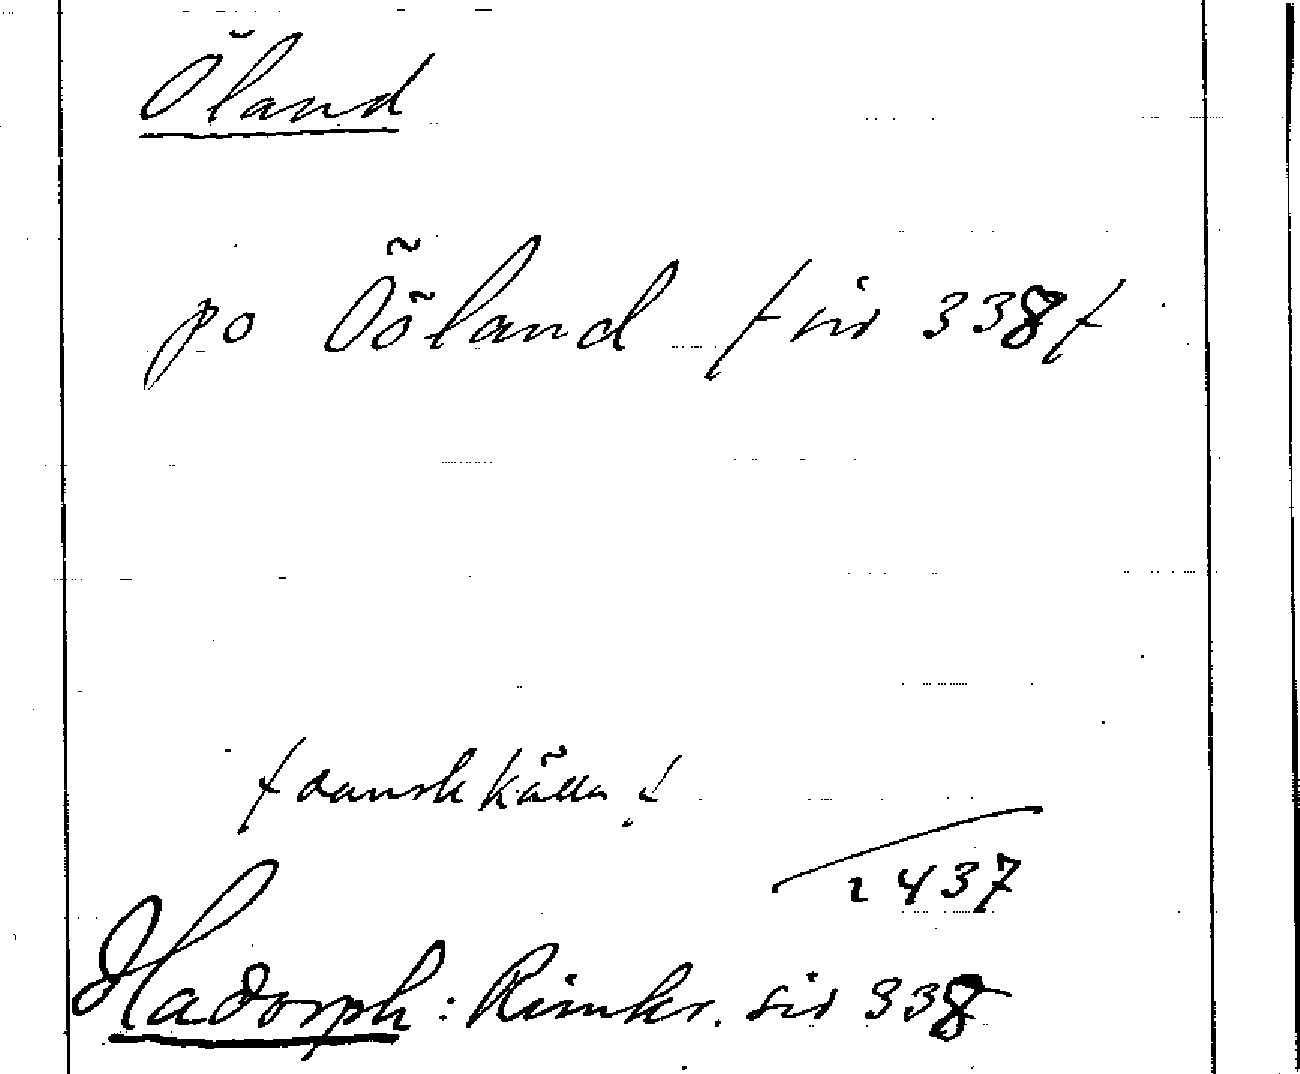 Öland
po Öõland /: sid 338 :/
/: dansk källa! :/
1437
Hadorph: Rimkr. sid 338